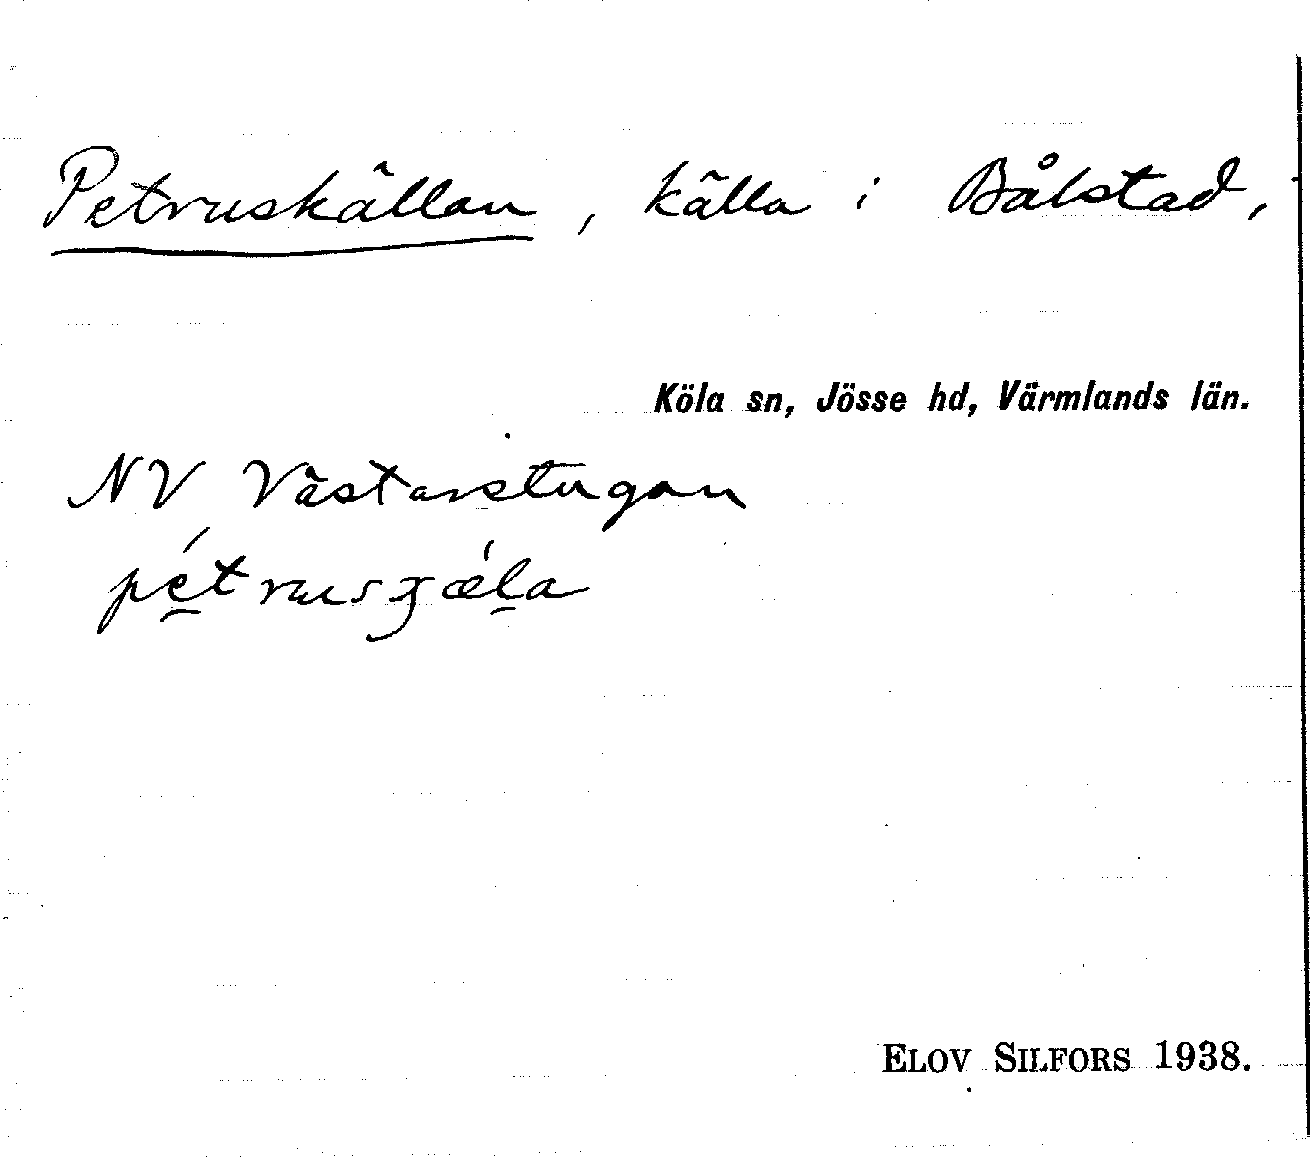 Petruskällan, källa i Bålstad,
Köla sn, Jösse hd, Värmlands län.
NV Västarstugan
ELOV SILFORS 1938.